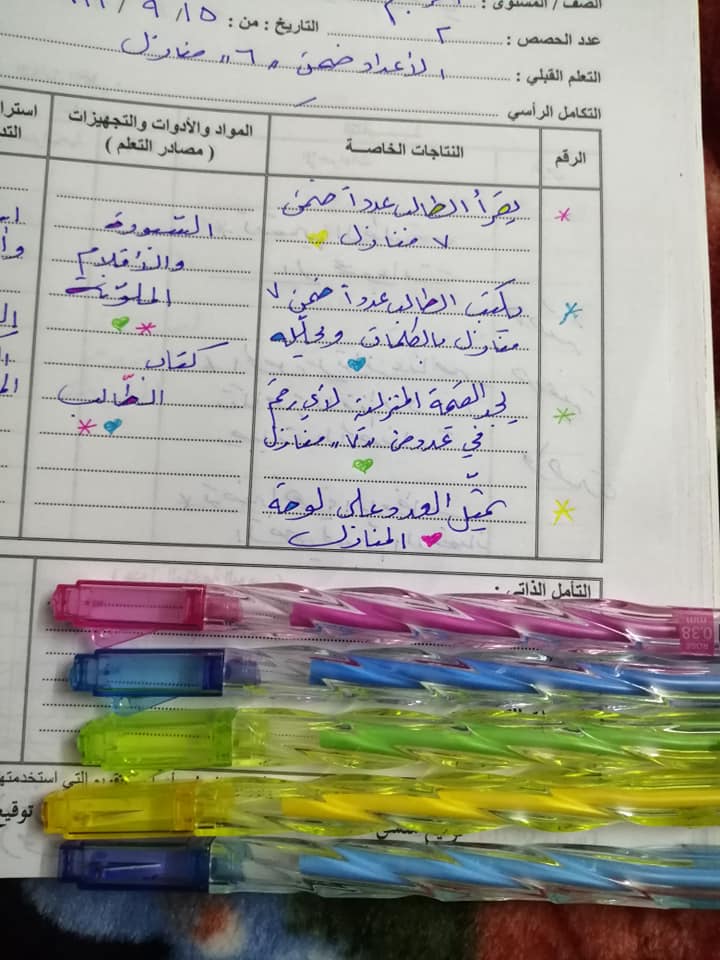 الصف / المستوى :
عدد الحصص : ٢ التاريخ : من : ١٥ / ٩ /
التعلم القبلي : الأعداد ضمن "٦" منازل
التكامل الرأسي
الرقم
النتاجات الخاصة
المواد والأدوات والتجهيزات
( مصادر التعلم )
يقرأ الطالب عدداً ضمن
٧ منازل
يكتب الطالب عدداً ضمن ٧
منازل بالكلمات ويحلله
يجد القيمة المنزلية لأي رقم
في عدد ضمن "٧" منازل
يمثّل العدد على لوحة
المنازل
السبورة
والأقلام
الملونة
كتاب
الطّالب
التأمل الذاتي :
0.38
mm
التي استخدمتها
توقيع